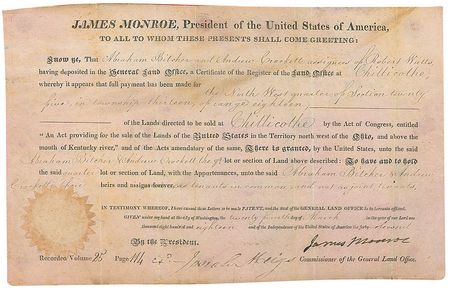 JAMES MONROE, President of the United States of America,
TO ALL TO WHOM THESE PRESENTS SHALL COME GREETING:
Know ye, That Abraham Bitcher and Andrew Crockett assignees of Robert Watts
having deposited in the General Land Office, a Certificate of the Register of the Land Office at Chillicothe,
whereby it appears that full payment has been made for the North West quarter of Section twenty
five, in township thirteen, of range eighteen,
of the Lands directed to be sold at Chillicothe by the Act of Congress, entitled
"An Act providing for the sale of the Lands of the United States in the Territory north west of the Ohio, and above the
mouth of Kentucky river," and of the Acts amendatory of the same, There is granted, by the United States, unto the said
Abraham Bitcher & Andrew Crockett the qr lot or section of Land above described: To have and to hold
the said quarter lot or section of Land, with the Appurtenances, unto the said Abraham Bitcher & Andrew
Crockett their heirs and assigns forever, as tenants in common and not as joint tenants.
IN TESTIMONY WHEREOF, I have caused these Letters to be made PATENT, and the Seal of the GENERAL LAND OFFICE to be hereunto affixed.
GIVEN under my hand at the City of Washington, the twenty fourth day of March in the year of our Lord
one thousand eight hundred and eighteen and of the Independence of the United States of America the forty second
By the President James Monroe
Josiah Meigs Commissioner of the General Land Office.
Recorded Volume Page 114